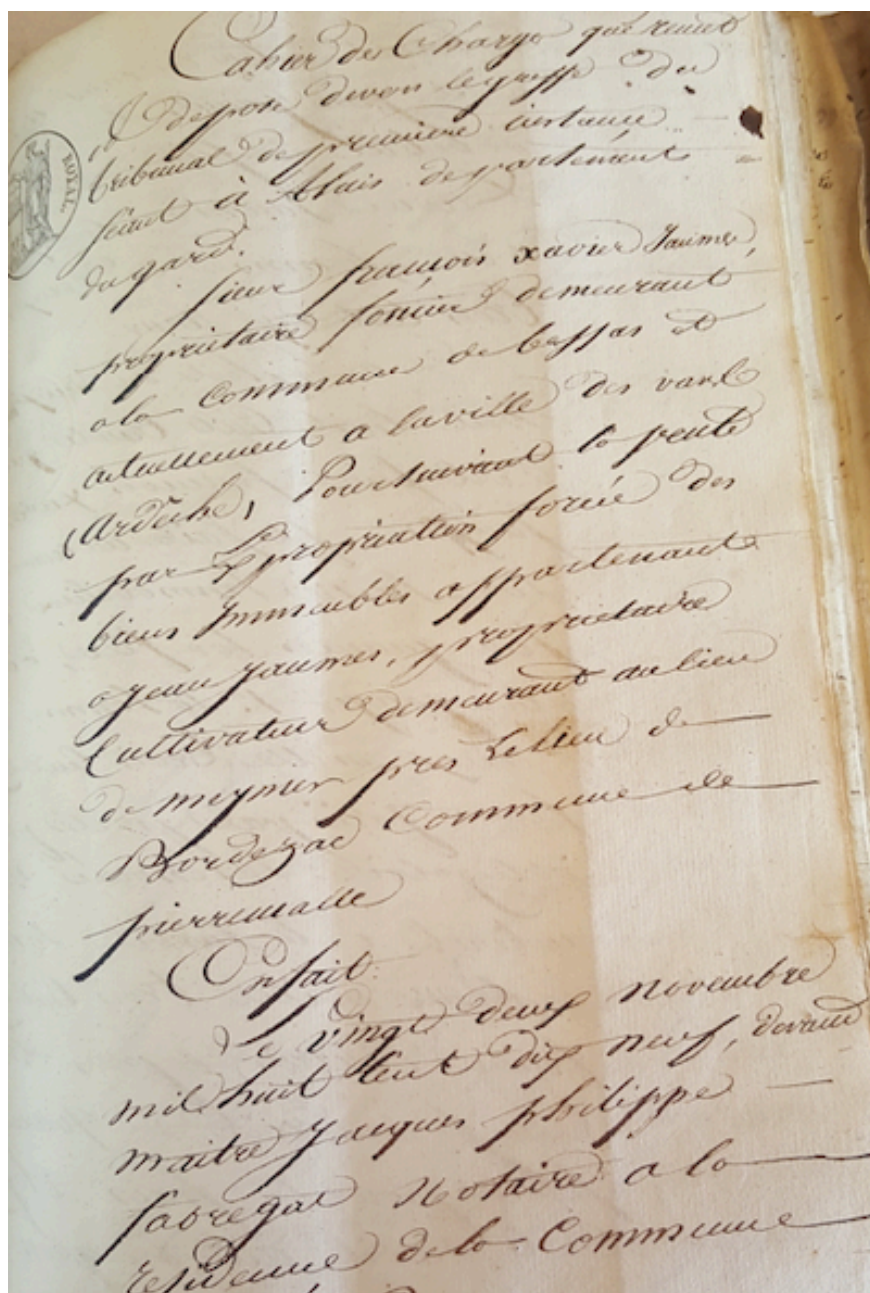 Cahier des Charges que remet
et depose devers le greffe du
tribunal de premiere instance
séant à Alais departement
du gard.
ROYAL.
sieur françois xavier Jaumes,
proprietaire foncier demeurant
a la commune de bessas et
actuellement a la ville des vans
(ardeche) Poursuivant la vente
par Expropriation forcée des
biens Immeubles appartenant
a jean jaumes, proprietaire
Cultivateur demeurant au lieu
de meymier pres Le lieu de
Bordezac Commune de
pierremalle
En fait
Le vingt deux novembre
mil huit cent dix neuf, devant
maitre Jacques philippe
fabregat Notaire a la
residence de la Commune